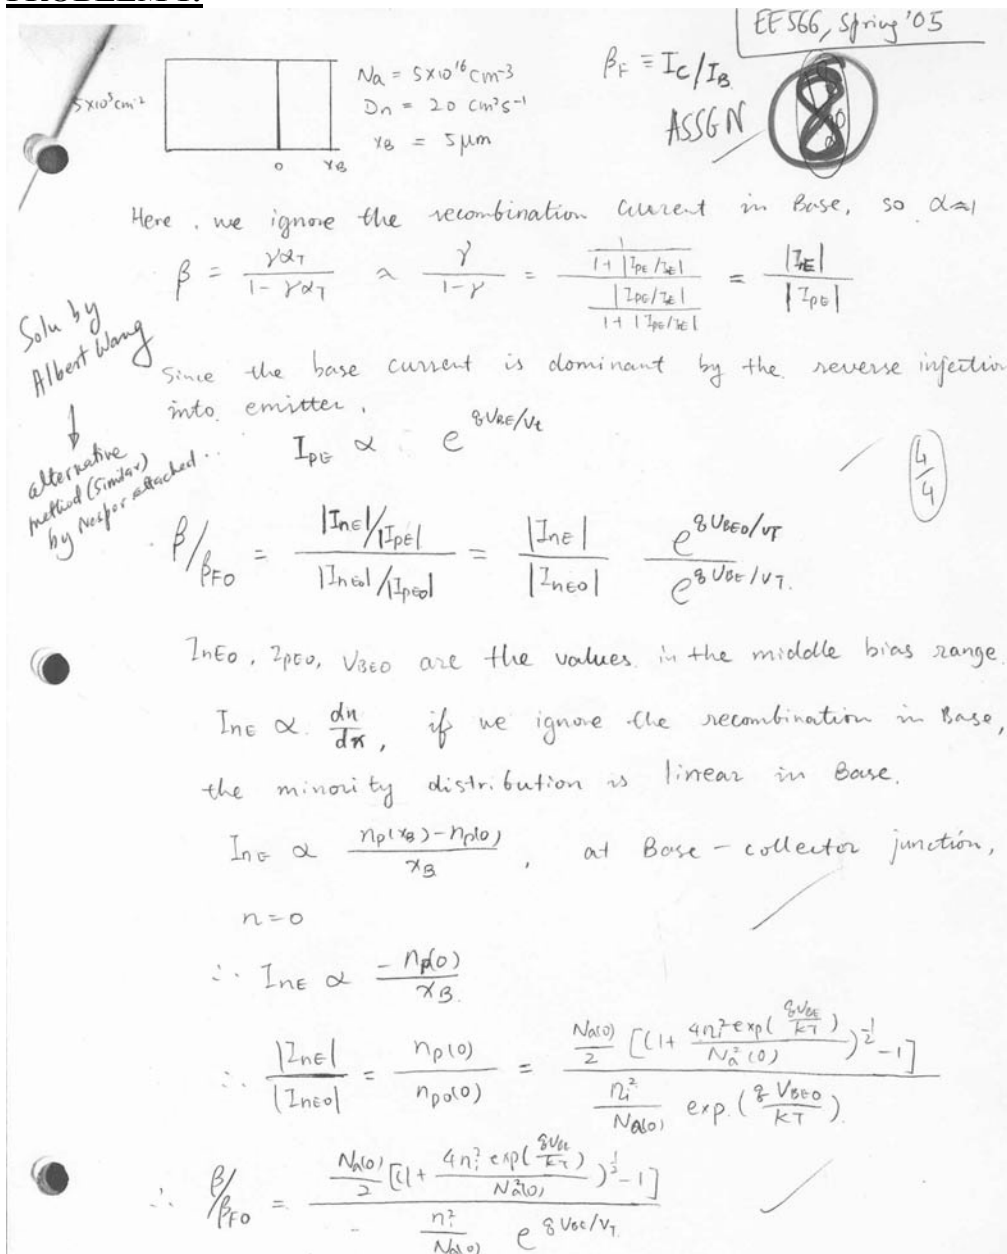 PROBLEM 1:
EE566, Spring '05
5x10⁵cm⁻²
Na = 5x10¹⁶ cm⁻³
Dn = 20 cm²s⁻¹
xB = 5μm
0 xB
βF ≡ IC/IB
ASSGN 8
Here, we ignore the recombination current in Base, so α≈1
β = γαT / (1 - γαT) ≈ γ / (1-γ) = [1 / (1+|IpE/InE|)] / [|IpE/InE| / (1+|IpE/InE|)] = |InE| / |IpE|
Soln by
Albert Wang
↓
alternative
method (similar)
by Nospor attached..
Since the base current is dominant by the reverse injection
into emitter,
IpE ∝ e^(qVBE/Vt)
4/4
β/βF0 = (|InE|/|IpE|) / (|InE0|/|IpE0|) = |InE| / |InE0| e^(qVBE0/VT) / e^(qVBE/VT).
InE0, IpE0, VBE0 are the values in the middle bias range.
InE ∝ dn/dx, if we ignore the recombination in Base,
the minority distribution is linear in Base.
InE ∝ (np(xB) - np(0)) / xB, at Base-collector junction,
n=0
∴ InE ∝ -np(0) / xB.
∴ |InE| / |InE0| = np(0) / np0(0) = Na(0)/2 [(1+ 4ni² exp(qVBE/kT) / Na²(0))^½ -1] / (ni²/Na(0) exp.(qVBE0/kT)).
∴ β/βF0 = Na(0)/2 [(1+ 4ni² exp(qVBE/kT) / Na²(0))^½ -1] / (ni²/Na(0) e^(qVBE/VT).)